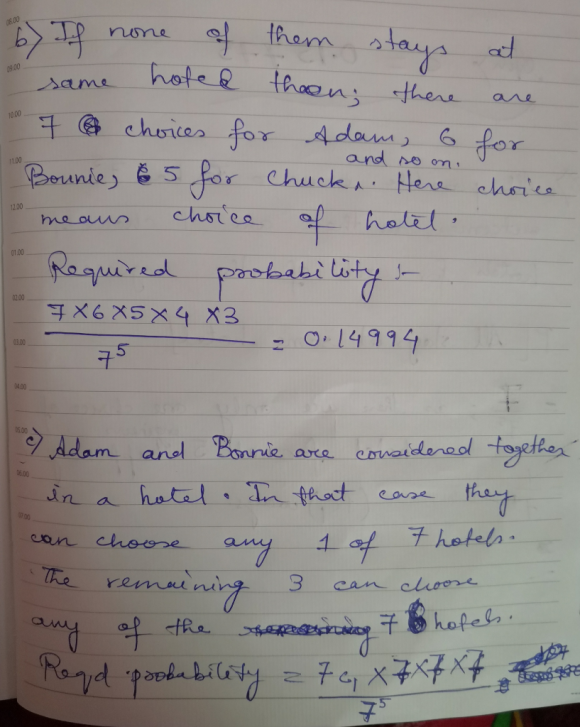 b) If none of them stays at
same hotel then; there are
7 choices for Adam, 6 for
Bounie, 5 for Chuck and so on. Here choice
means choice of hotel.
Required probability :-
7 X 6 X 5 X 4 X 3
7^5 = 0.14994
c) Adam and Bonnie are considered together
in a hotel. In that case they
can choose any 1 of 7 hotels.
The remaining 3 can choose
any of the 7 hotels.
Reqd probability = 7c₁ X 7 X 7 X 7
7^5